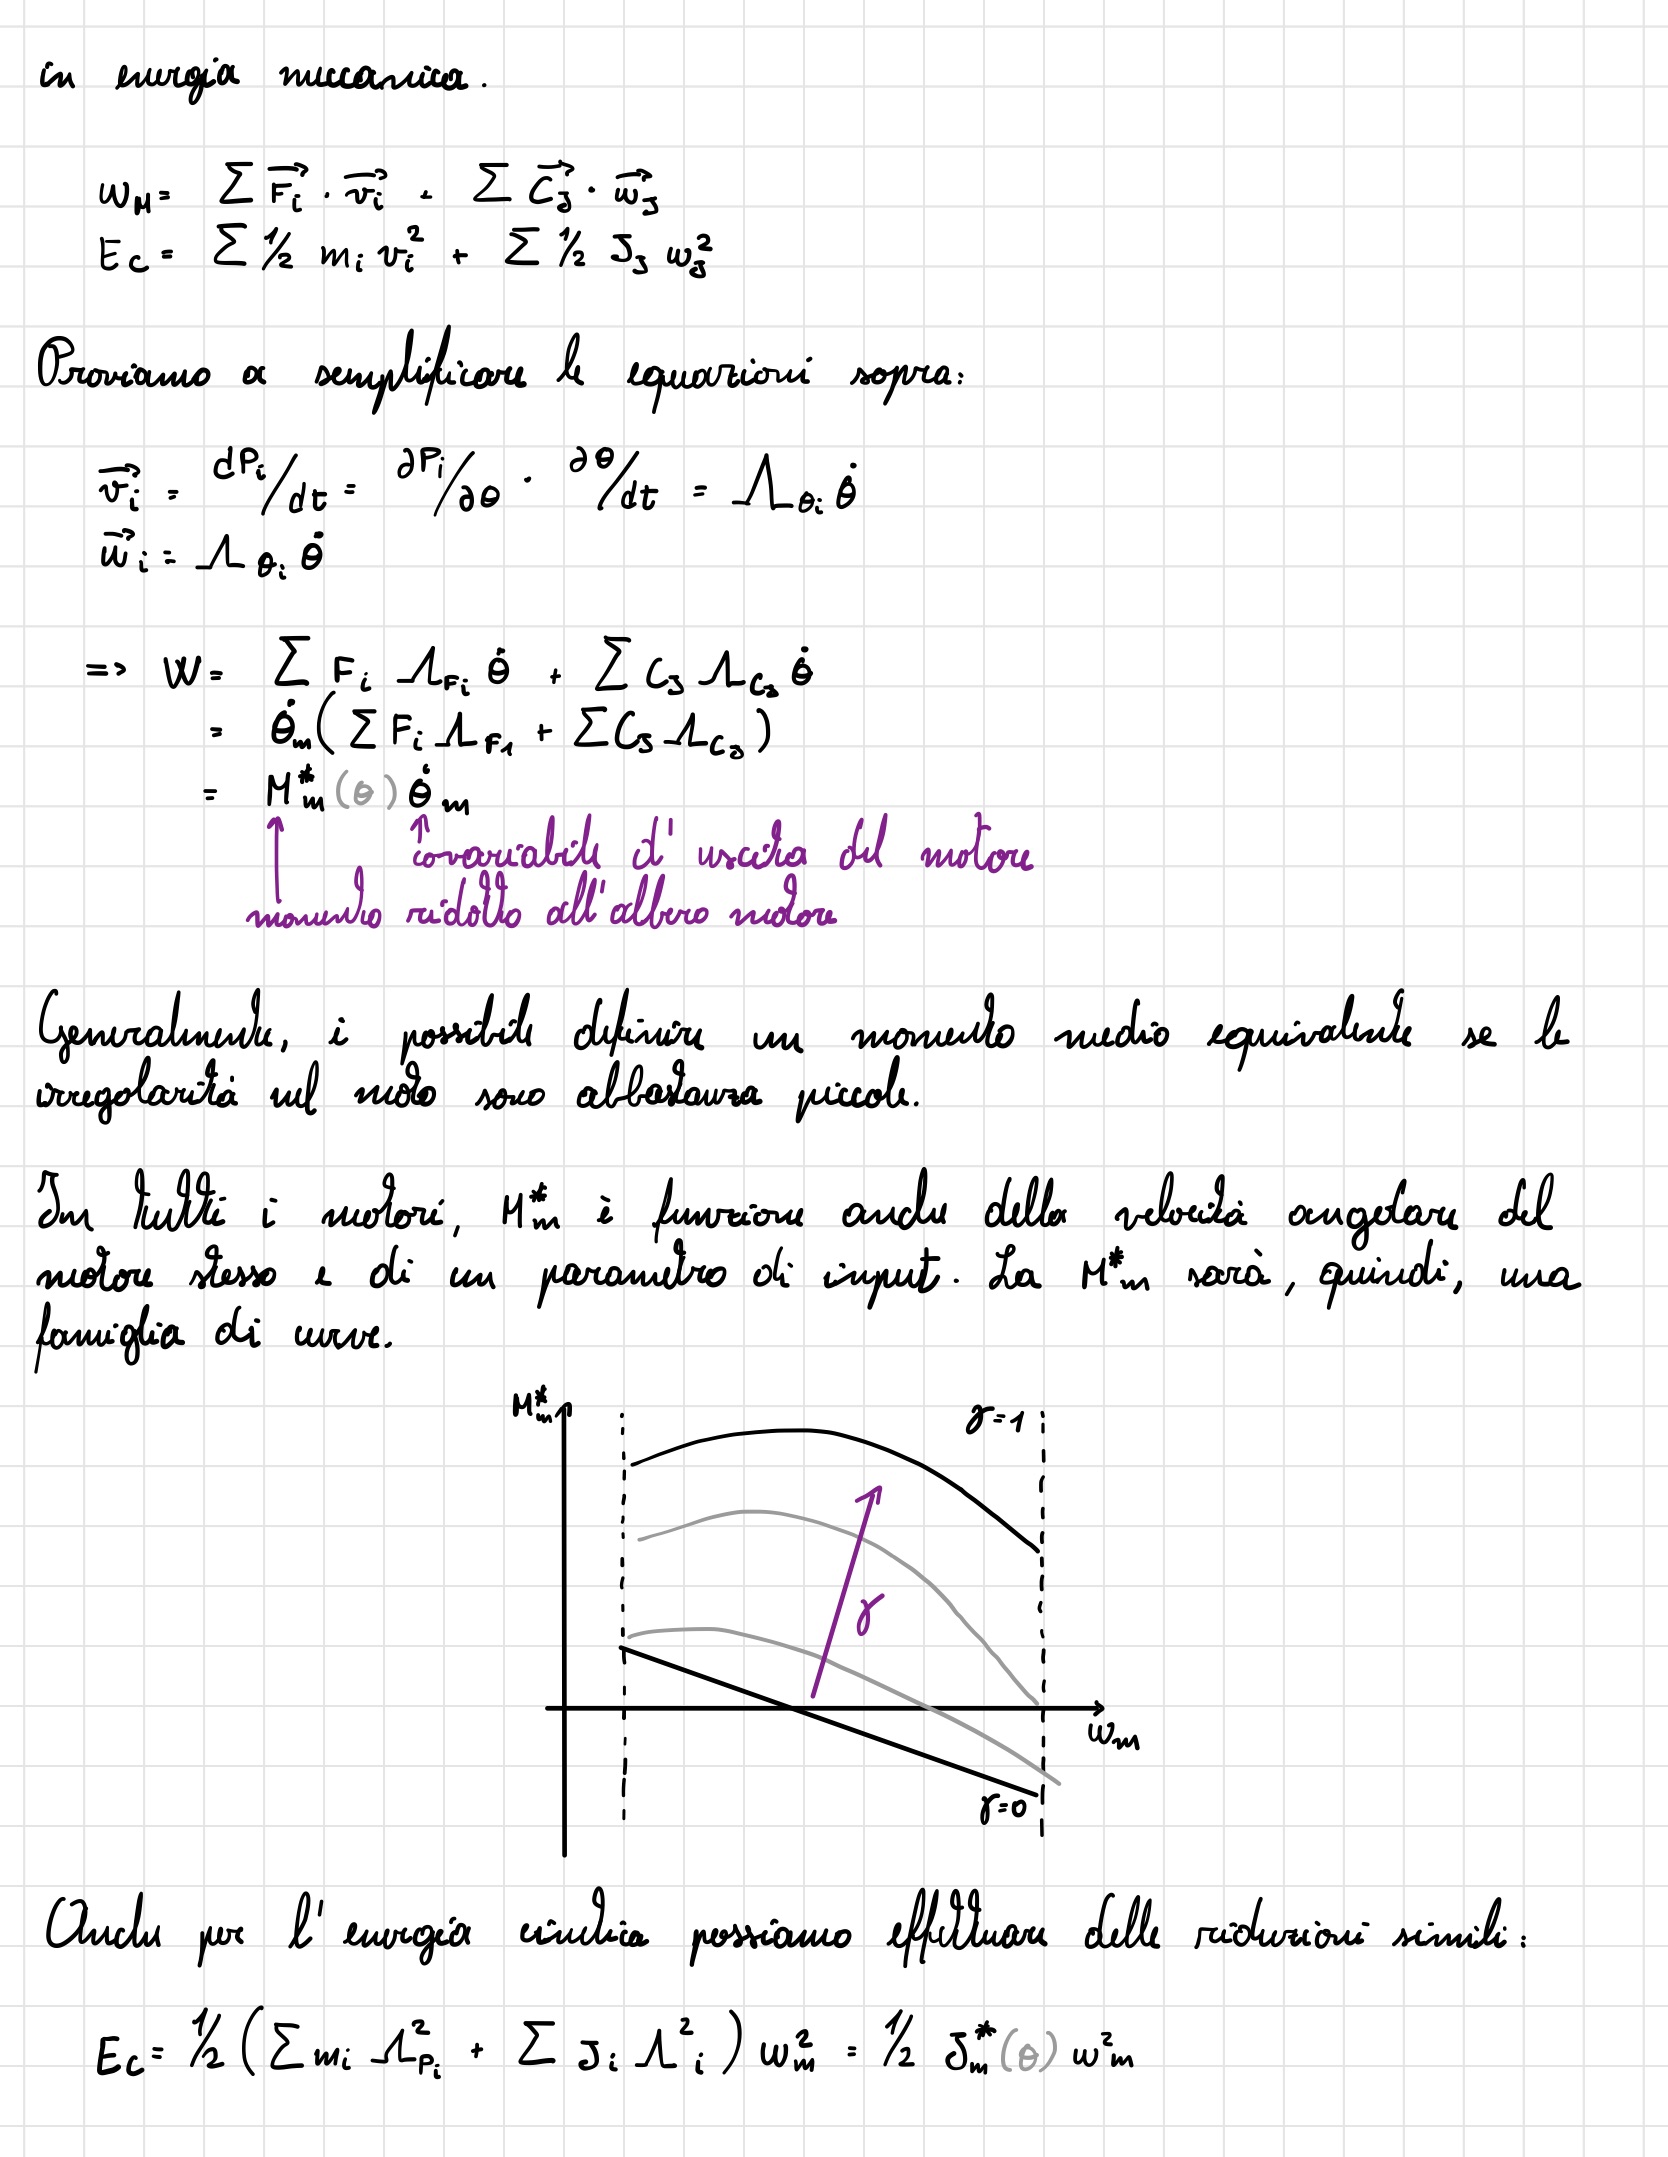 in energia meccanica.
W_M = Σ F⃗_i · v⃗_i + Σ C⃗_J · ω⃗_J
E_C = Σ 1/2 m_i v_i² + Σ 1/2 J_J ω_J²
Proviamo a semplificare le equazioni sopra:
v⃗_i = dP_i/dt = ∂P_i/∂θ · ∂θ/dt = Λ_θi θ̇
ω⃗_i = Λ_θi θ̇
=> W = Σ F_i Λ_Fi θ̇ + Σ C_J Λ_CJ θ̇
= θ̇_m (Σ F_i Λ_F1 + Σ C_J Λ_CJ)
= M*_m (θ) θ̇_m
covariabile d'uscita del motore
momento ridotto all'albero motore
Generalmente, è possibile definire un momento medio equivalente se le
irregolarità nel moto sono abbastanza piccole.
In tutti i motori, M*_m è funzione anche della velocità angolare del
motore stesso e di un parametro di input. La M*_m sarà, quindi, una
famiglia di curve.
M*_m
γ=1
γ
ω_m
γ=0
Anche per l'energia cinetica possiamo effettuare delle riduzioni simili:
E_C = 1/2 (Σ m_i Λ²_Pi + Σ J_i Λ²_i) ω²_m = 1/2 J*_m (θ) ω²_m